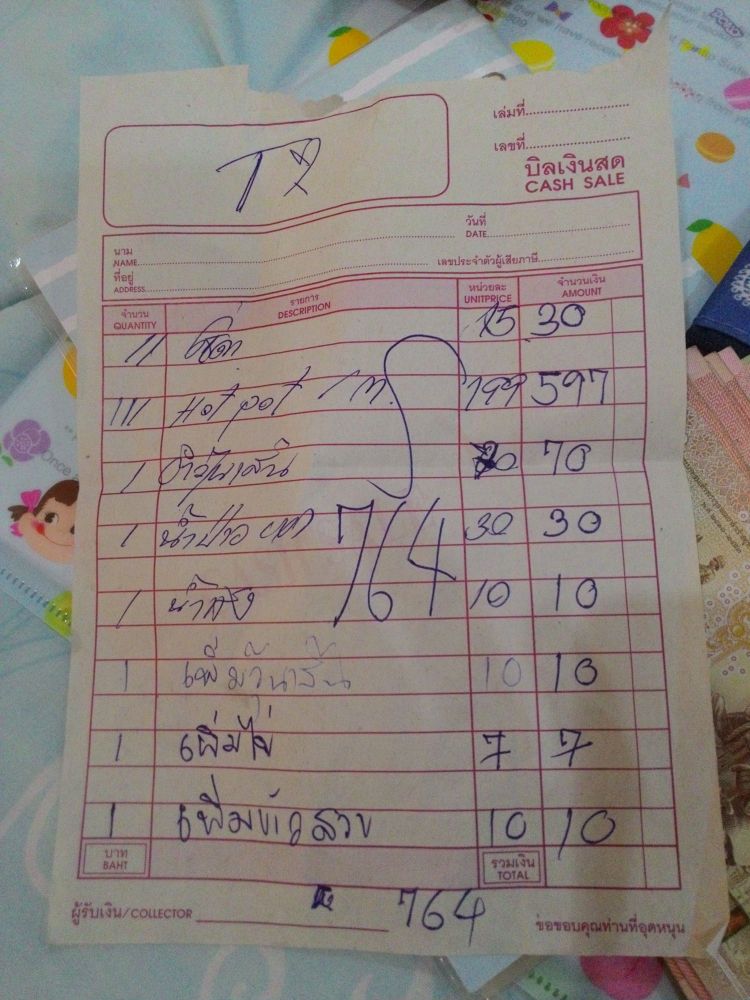 T2
เล่มที่
เลขที่
บิลเงินสด
CASH SALE
วันที่
DATE
นาม
NAME
เลขประจำตัวผู้เสียภาษี
ที่อยู่
ADDRESS
จำนวน รายการ หน่วยละ จำนวนเงิน
QUANTITY DESCRIPTION UNITPRICE AMOUNT
11 15 30
111 Hot pot 199 597
1 70
1 30 30
1 10 10
764
1 เพิ่มวุ้นเส้น 10 10
1 เพิ่มไข่ 7 7
1 เพิ่มข้าวสวย 10 10
บาท รวมเงิน
BAHT TOTAL
764
ผู้รับเงิน/COLLECTOR ขอขอบคุณท่านที่อุดหนุน